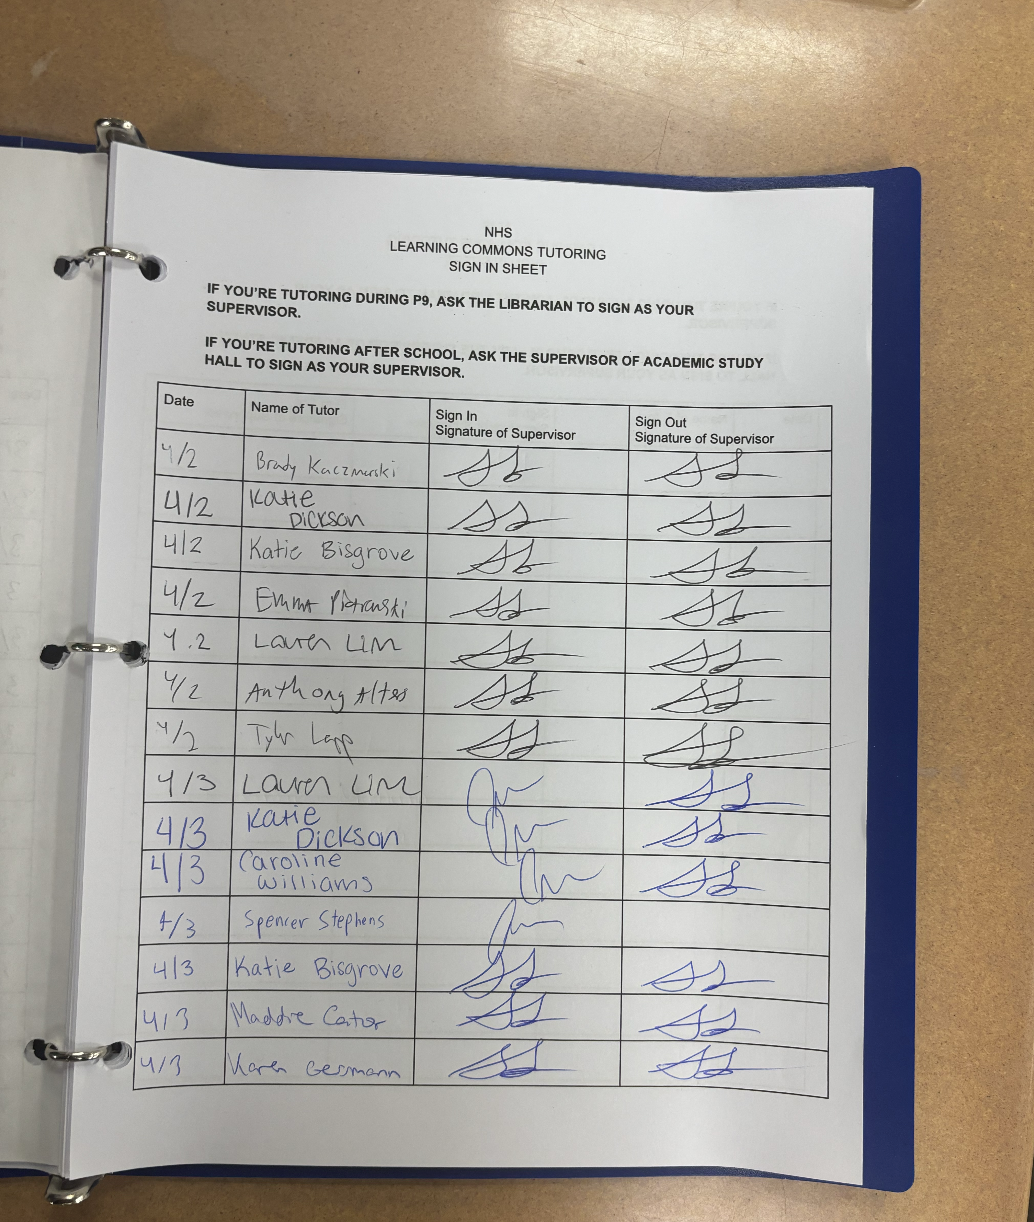 NHS
LEARNING COMMONS TUTORING
SIGN IN SHEET
IF YOU'RE TUTORING DURING P9, ASK THE LIBRARIAN TO SIGN AS YOUR
SUPERVISOR.
IF YOU'RE TUTORING AFTER SCHOOL, ASK THE SUPERVISOR OF ACADEMIC STUDY
HALL TO SIGN AS YOUR SUPERVISOR.
Date Name of Tutor Sign In Sign Out
Signature of Supervisor Signature of Supervisor
4/2 Brady Kaczmarski
4/2 Katie
Dickson
4/2 Katie Bisgrove
4/2 Emma
4.2 Lauren Lim
4/2 Anthony Altes
4/2 Tyler Lapp
4/3 Lauren Lim
4/3 Katie
Dickson
4/3 Caroline
Williams
4/3 Spencer Stephens
4/3 Katie Bisgrove
4/3 Maddie
4/3 Karen Germann